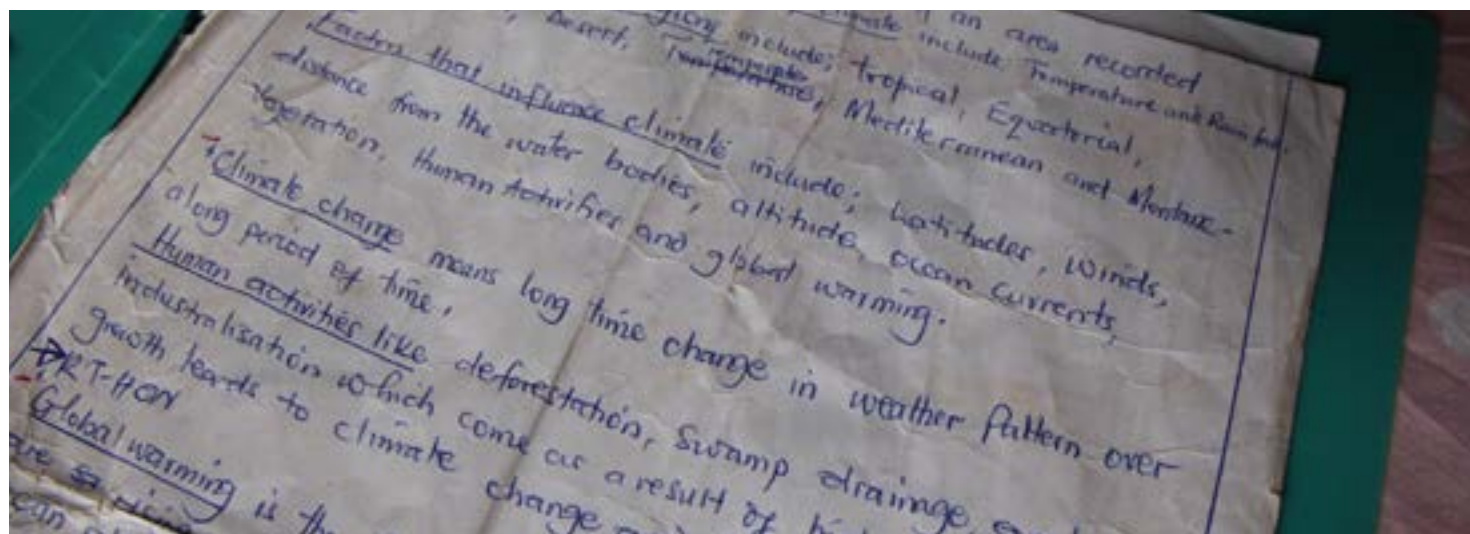 an area recorded
climate include Temperature and Rainfall.
include; tropical, Equatorial,
Desert, Temperate, Mediterranean and Montane.
Factors that influence climate include; Latitudes, Winds,
distance from the water bodies, altitude, ocean currents,
vegetation, Human Activities and global warming.
Climate change means long time change in weather Pattern over
along period of time.
Human activities like deforestation, swamp drainage,
industralisation which come as a result of
growth leads to climate change
RT-HON
Global warming is the
are
can